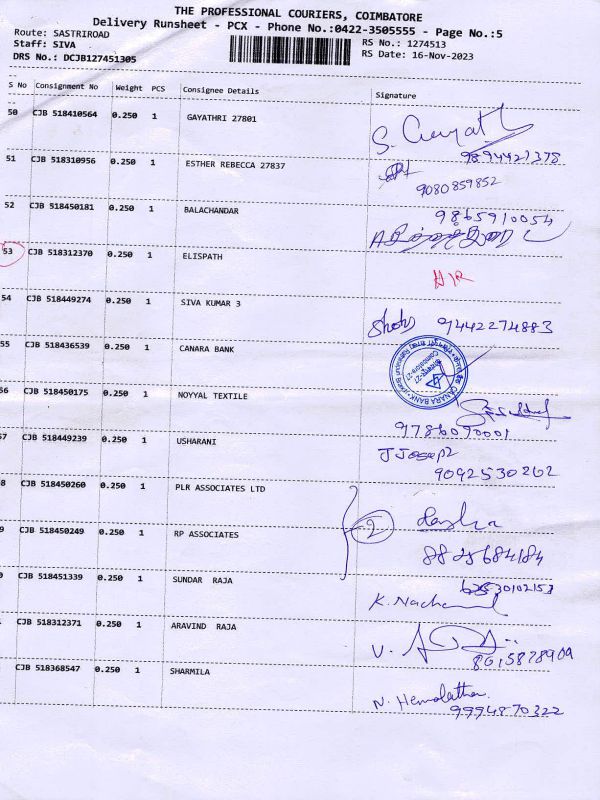 THE PROFESSIONAL COURIERS, COIMBATORE
Delivery Runsheet - PCX - Phone No.:0422-3505555 - Page No.:5
Route: SASTRIROAD RS No.: 1274513
Staff: SIVA RS Date: 16-Nov-2023
DRS No.: DCJB127451305
S No Consignment No Weight PCS Consignee Details Signature
50 CJB 518410564 0.250 1 GAYATHRI 27801 S. Gayat
9894421378
51 CJB 518310956 0.250 1 ESTHER REBECCA 27837
9080859852
52 CJB 518450181 0.250 1 BALACHANDAR 9865910054
53 CJB 518312370 0.250 1 ELISPATH
54 CJB 518449274 0.250 1 SIVA KUMAR 3 9442274883
55 CJB 518436539 0.250 1 CANARA BANK CANARA BANK
56 CJB 518450175 0.250 1 NOYYAL TEXTILE
9786090001
57 CJB 518449239 0.250 1 USHARANI
9092530202
8 CJB 518450260 0.250 1 PLR ASSOCIATES LTD
9 CJB 518450249 0.250 1 RP ASSOCIATES 2
8825684184
0 CJB 518451339 0.250 1 SUNDAR RAJA
CJB 518312371 0.250 1 ARAVIND RAJA V.
CJB 518368547 0.250 1 SHARMILA N. Hemalatha
9994870322